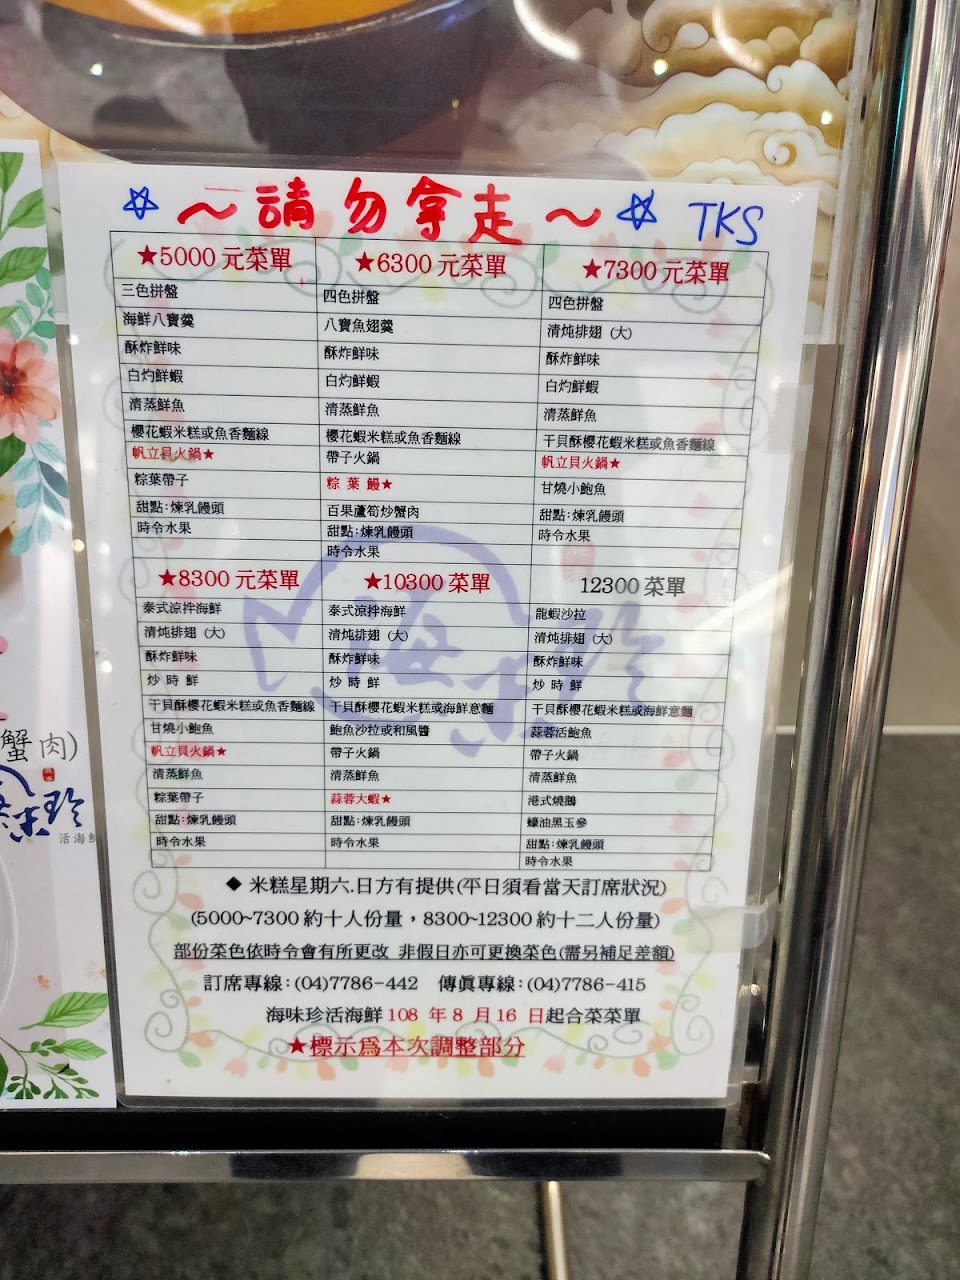 ～請勿拿走～ TKS
★5000 元菜單 ★6300 元菜單 ★7300 元菜單
三色拼盤 四色拼盤 四色拼盤
海鮮八寶羹 八寶魚翅羹 清炖排翅 (大)
酥炸鮮味 酥炸鮮味 酥炸鮮味
白灼鮮蝦 白灼鮮蝦 白灼鮮蝦
清蒸鮮魚 清蒸鮮魚 清蒸鮮魚
櫻花蝦米糕或魚香麵線 櫻花蝦米糕或魚香麵線 干貝酥櫻花蝦米糕或魚香麵線
帆立貝火鍋★ 帶子火鍋 帆立貝火鍋★
粽葉帶子 粽 葉 鰻★ 甘燒小鮑魚
甜點:煉乳饅頭 百果蘆筍炒蟹肉 甜點:煉乳饅頭
時令水果 甜點:煉乳饅頭 時令水果
時令水果
★8300 元菜單 ★10300 菜單 12300 菜單
泰式涼拌海鮮 泰式涼拌海鮮 龍蝦沙拉
清炖排翅 (大) 清炖排翅 (大) 清炖排翅 (大)
酥炸鮮味 酥炸鮮味 酥炸鮮味
炒 時 鮮 炒 時 鮮 炒 時 鮮
干貝酥櫻花蝦米糕或魚香麵線 干貝酥櫻花蝦米糕或海鮮意麵 干貝酥櫻花蝦米糕或海鮮意麵
甘燒小鮑魚 鮑魚沙拉或和風醬 蒜蓉活鮑魚
帆立貝火鍋★ 帶子火鍋 帶子火鍋
清蒸鮮魚 清蒸鮮魚 清蒸鮮魚
粽葉帶子 蒜蓉大蝦★ 港式燒鵝
甜點:煉乳饅頭 甜點:煉乳饅頭 蠔油黑玉參
時令水果 時令水果 甜點:煉乳饅頭
時令水果
◆ 米糕星期六.日方有提供(平日須看當天訂席狀況)
(5000~7300 約十人份量，8300~12300 約十二人份量)
部份菜色依時令會有所更改 非假日亦可更換菜色(需另補足差額)
訂席專線:(04)7786-442 傳眞專線:(04)7786-415
海味珍活海鮮 108 年 8 月 16 日起合菜菜單
★標示爲本次調整部分
蟹肉)
活海鮮